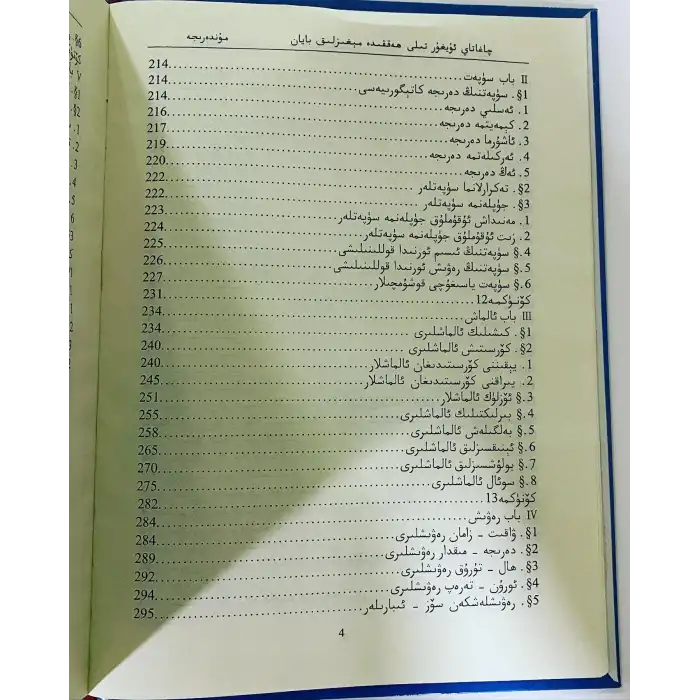 چاغاتاي ئۇيغۇر تىلى ھەققىدە مېغىزلىق بايان مۇندەرىجە
II باب سۈپەت.....214
§1. سۈپەتنىڭ دەرىجە كاتېگورىيەسى.....214
1. ئەسلىي دەرىجە.....214
2. كېمەيتمە دەرىجە.....216
3. ئاشۇرما دەرىجە.....217
4. ئەركىلەتمە دەرىجە.....219
5. ئەڭ دەرىجە.....220
§2. تەكرارلانما سۈپەتلەر.....222
§3. جۈپلەنمە سۈپەتلەر.....222
1. مەنىداش ئۇقۇملۇق جۈپلەنمە سۈپەتلەر.....223
2. زىت ئۇقۇملۇق جۈپلەنمە سۈپەتلەر.....224
§4. سۈپەتنىڭ ئىسىم ئورنىدا قوللىنىلىشى.....225
§5. سۈپەتنىڭ رەۋىش ئورنىدا قوللىنىلىشى.....226
§6. سۈپەت ياسىغۇچى قوشۇمچىلار.....227
كۆنۈكمە12.....231
III باب ئالماش.....234
§1. كىشىلىك ئالماشلىرى.....234
§2. كۆرسىتىش ئالماشلىرى.....240
1. يېقىننى كۆرسىتىدىغان ئالماشلار.....240
2. يىراقنى كۆرسىتىدىغان ئالماشلار.....245
§3. ئۆزلۈك ئالماشلار.....251
§4. بىرلىكتىلىك ئالماشلىرى.....255
§5. بەلگىلەش ئالماشلىرى.....258
§6. ئېنىقسىزلىق ئالماشلىرى.....265
§7. بولۇشسىزلىق ئالماشلىرى.....270
§8. سوئال ئالماشلىرى.....275
كۆنۈكمە13.....282
IV باب رەۋىش.....284
§1. ۋاقىت - زامان رەۋىشلىرى.....284
§2. دەرىجە - مىقدار رەۋىشلىرى.....289
§3. ھال - تۇرۇق رەۋىشلىرى.....292
§4. ئورۇن - تەرەپ رەۋىشلىرى.....294
§5. رەۋىشلەشكەن سۆز - ئىبارىلەر.....295
4